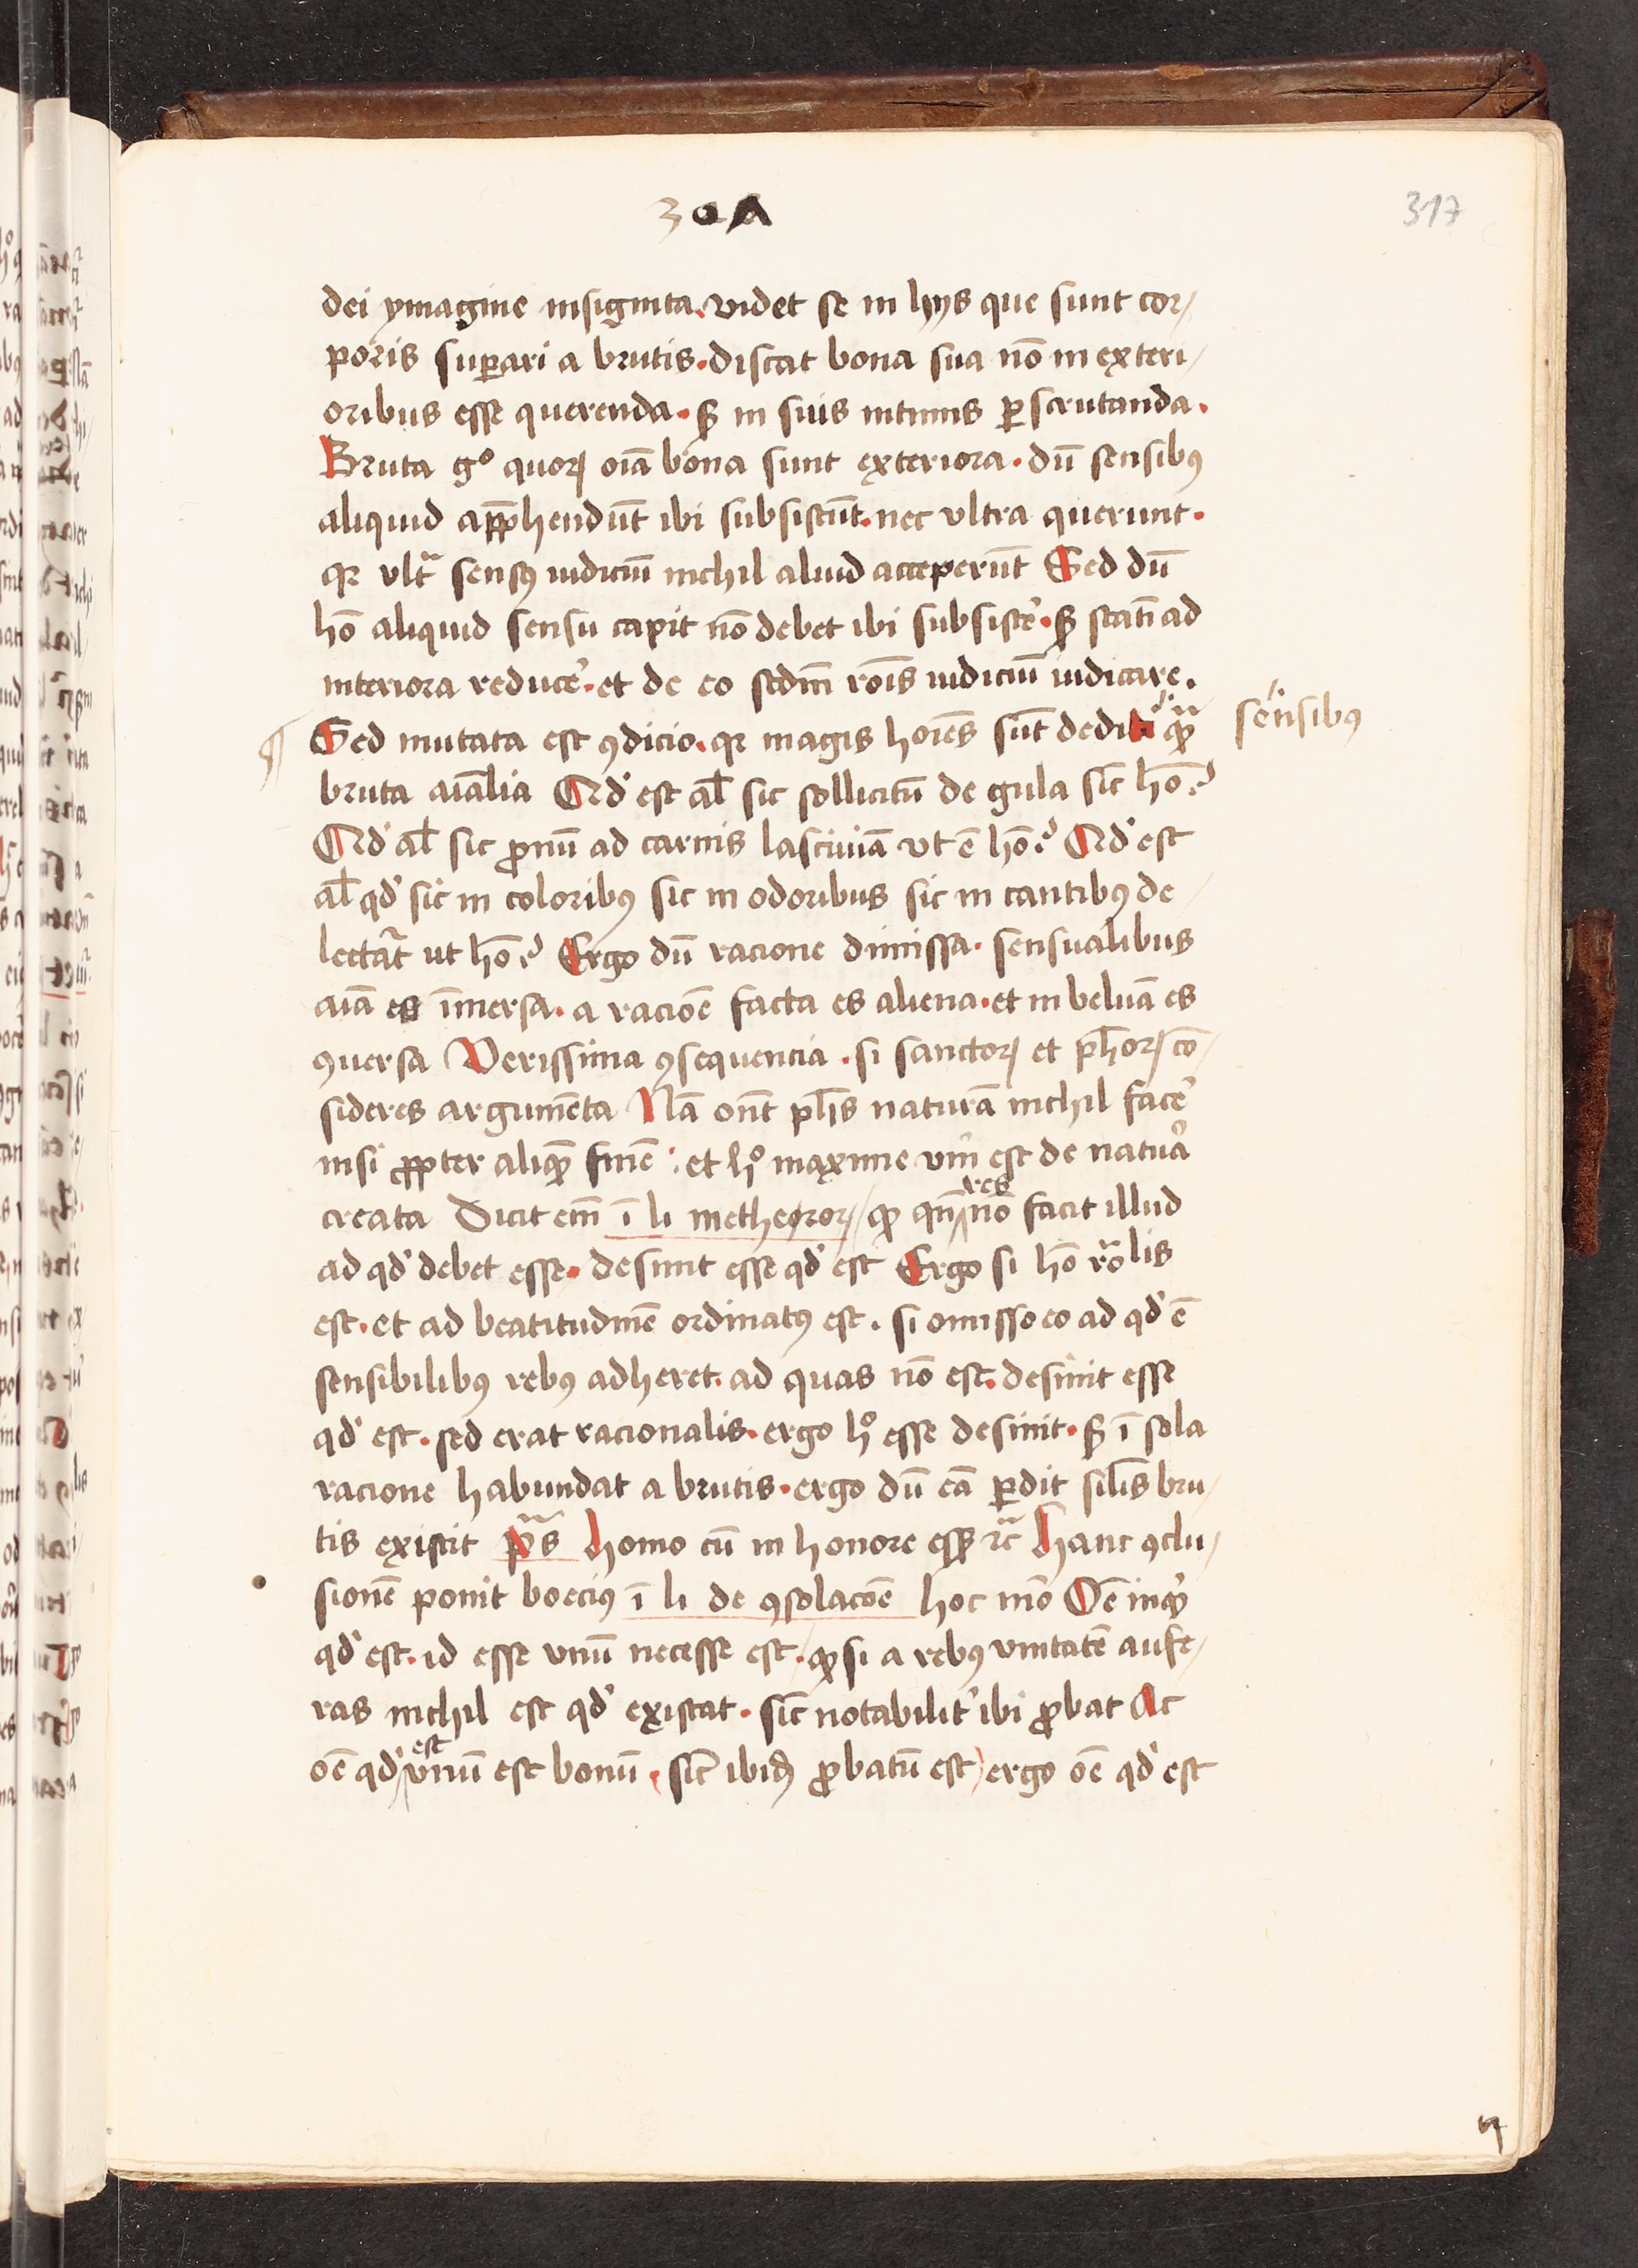 30A
317
dei ymagine insignita. videt se in hijs que sunt cor/
poris supari a brutis. discat bona sua nō in exteri/
oribus esse querenda. sꝫ in suis intimis ꝑscrutanda.
Bruta gͦ quoꝝ oīa bona sunt exteriora. dū sensibꝰ
aliquid apphendūt ibi subsistūt. nec vltra querunt.
qꝛ vltͣ sensꝰ iudiciū nichil aliud acceperūt Sed dū
hō aliquid sensu capit nō debet ibi subsistē. sꝫ statī ad
interiora reducē. et de eo scdm̄ rōis iudiciū iudicare.
Sed mutata est ꝯdicio. qꝛ magis hoīes sūt dediti qͣꝫ
sensibꝰ
bruta aīalia Qd' est al' sic sollicitū de gula sīc hō?
Qd' al' sic ꝓnū ad carnis lasciuiā vt ē hō? Qd' est
al' qd' sic in coloribꝰ sic in odoribus sic in cantibꝰ de/
lectat̄ ut hō? Ergo dū racione dimissa. sensualibus
aīa es īmersa. a raciōe facta es aliena. et in beluā es
ꝯuersa Verissima ꝯsequencia. si sanctoꝝ et ph̄oꝝ cō/
sideres argumēta Nā ont̄ ph̄is naturā nichil facē
nisi ꝓpter aliqꝫ finē : et hͦ maxime vm̄ est de natuā
creata Dicit em̄ ī li metheoroꝝ/ qꝫ qn̄ res nō facit illud
ad qd' debet esse. desinit esse qd' est Ergo si hō rōlis
est. et ad beatitudinē ordinatꝰ est. si omisso eo ad qd' ē
sensibilibꝰ rebꝰ adheret. ad quas nō est. desinit esse
qd' est. sed erat racionalis. ergo hͦ esse desinit. sꝫ ī sola
racione habundat a brutis. ergo dū eā ꝑdit sil̄is bru/
tis existit pͣs homo cū in honore essꝫ rc̄ hanc ꝯclu/
sionē ponit boecius ī li de ꝯsolacōe hoc mō Oē inqꝫ
qd' est. id esse vnū necesse est. qꝫ si a rebꝰ vnitatē aufe/
ras nichil est qd' existat. sīc notabilit' ibi ꝓbat Ac
oē qd' est vnū est bonū. sīc ibid ꝓbatū est) ergo oē qd' est